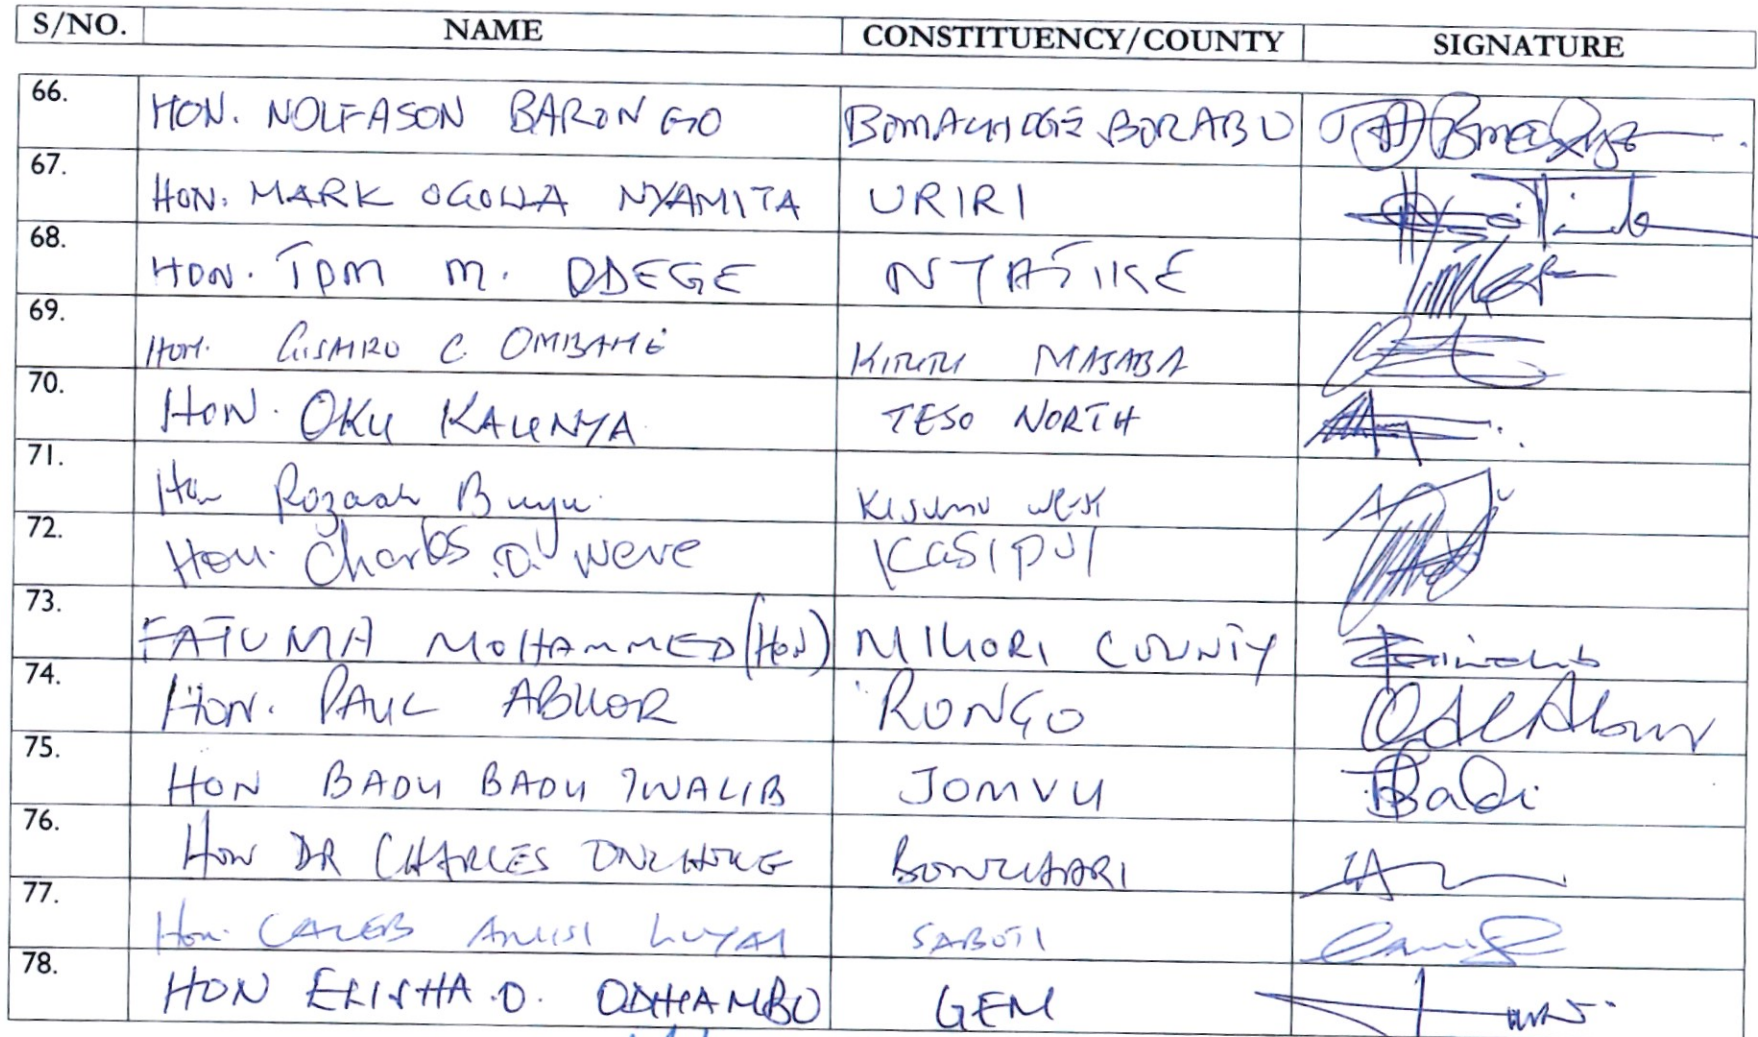 S/NO. NAME CONSTITUENCY/COUNTY SIGNATURE
66. HON. NOLFASON BARONGO BOMACHOGE BORABU
67. HON. MARK OGOLLA NYAMITA URIRI
68. HON. TOM M. ODEGE NYATIKE
69. HON. GISAIRO C. OMBAKI KITUTU MASABA
70. HON. OKU KAUNYA TESO NORTH
71. Hon Rozaah Buyu KISUMU WEST
72. Hon. Charles O. Were KASIPUL
73. FATUMA MOHAMMED (HON) MIGORI COUNTY
74. HON. PAUL ABUOR RONGO
75. HON BADY BADY TWALIB JOMVU
76. HON DR CHARLES ONCHOKE BONCHARI
77. Hon. CALEB AMISI LUYAI SABOTI
78. HON ELISHA O. ODHIAMBO GEM